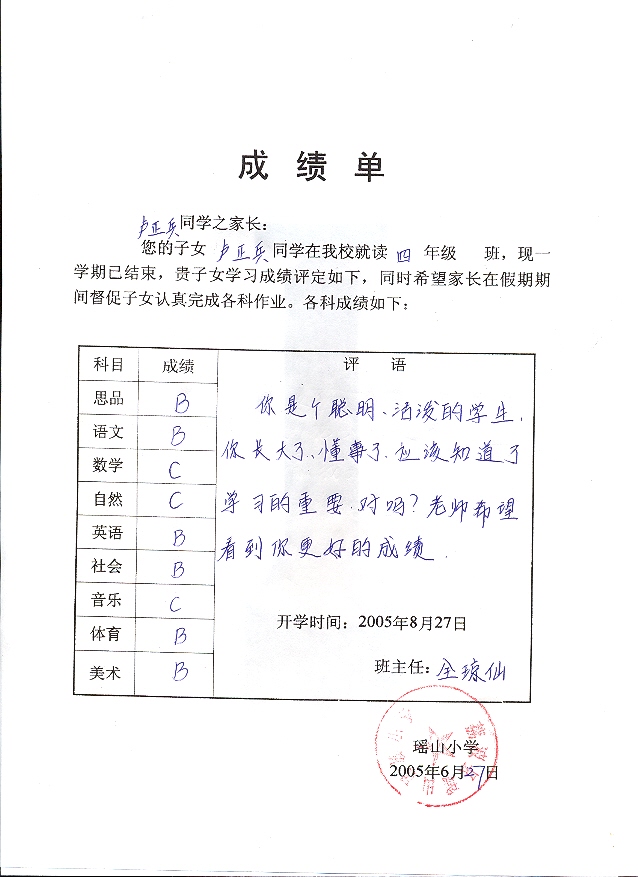 成绩单
卢正兵同学之家长：
您的子女 卢正兵 同学在我校就读 四 年级 班，现一
学期已结束，贵子女学习成绩评定如下，同时希望家长在假期期
间督促子女认真完成各科作业。各科成绩如下：
科目 成绩 评 语
思品 B
语文 B
数学 C
自然 C
英语 B
社会 B
音乐 C
体育 B
美术 B
你是个聪明、活泼的学生，
你长大了、懂事了、应该知道了
学习的重要、对吗？老师希望
看到你更好的成绩.
开学时间：2005年8月27日
班主任：全琼仙
瑶山小学
2005年6月27日